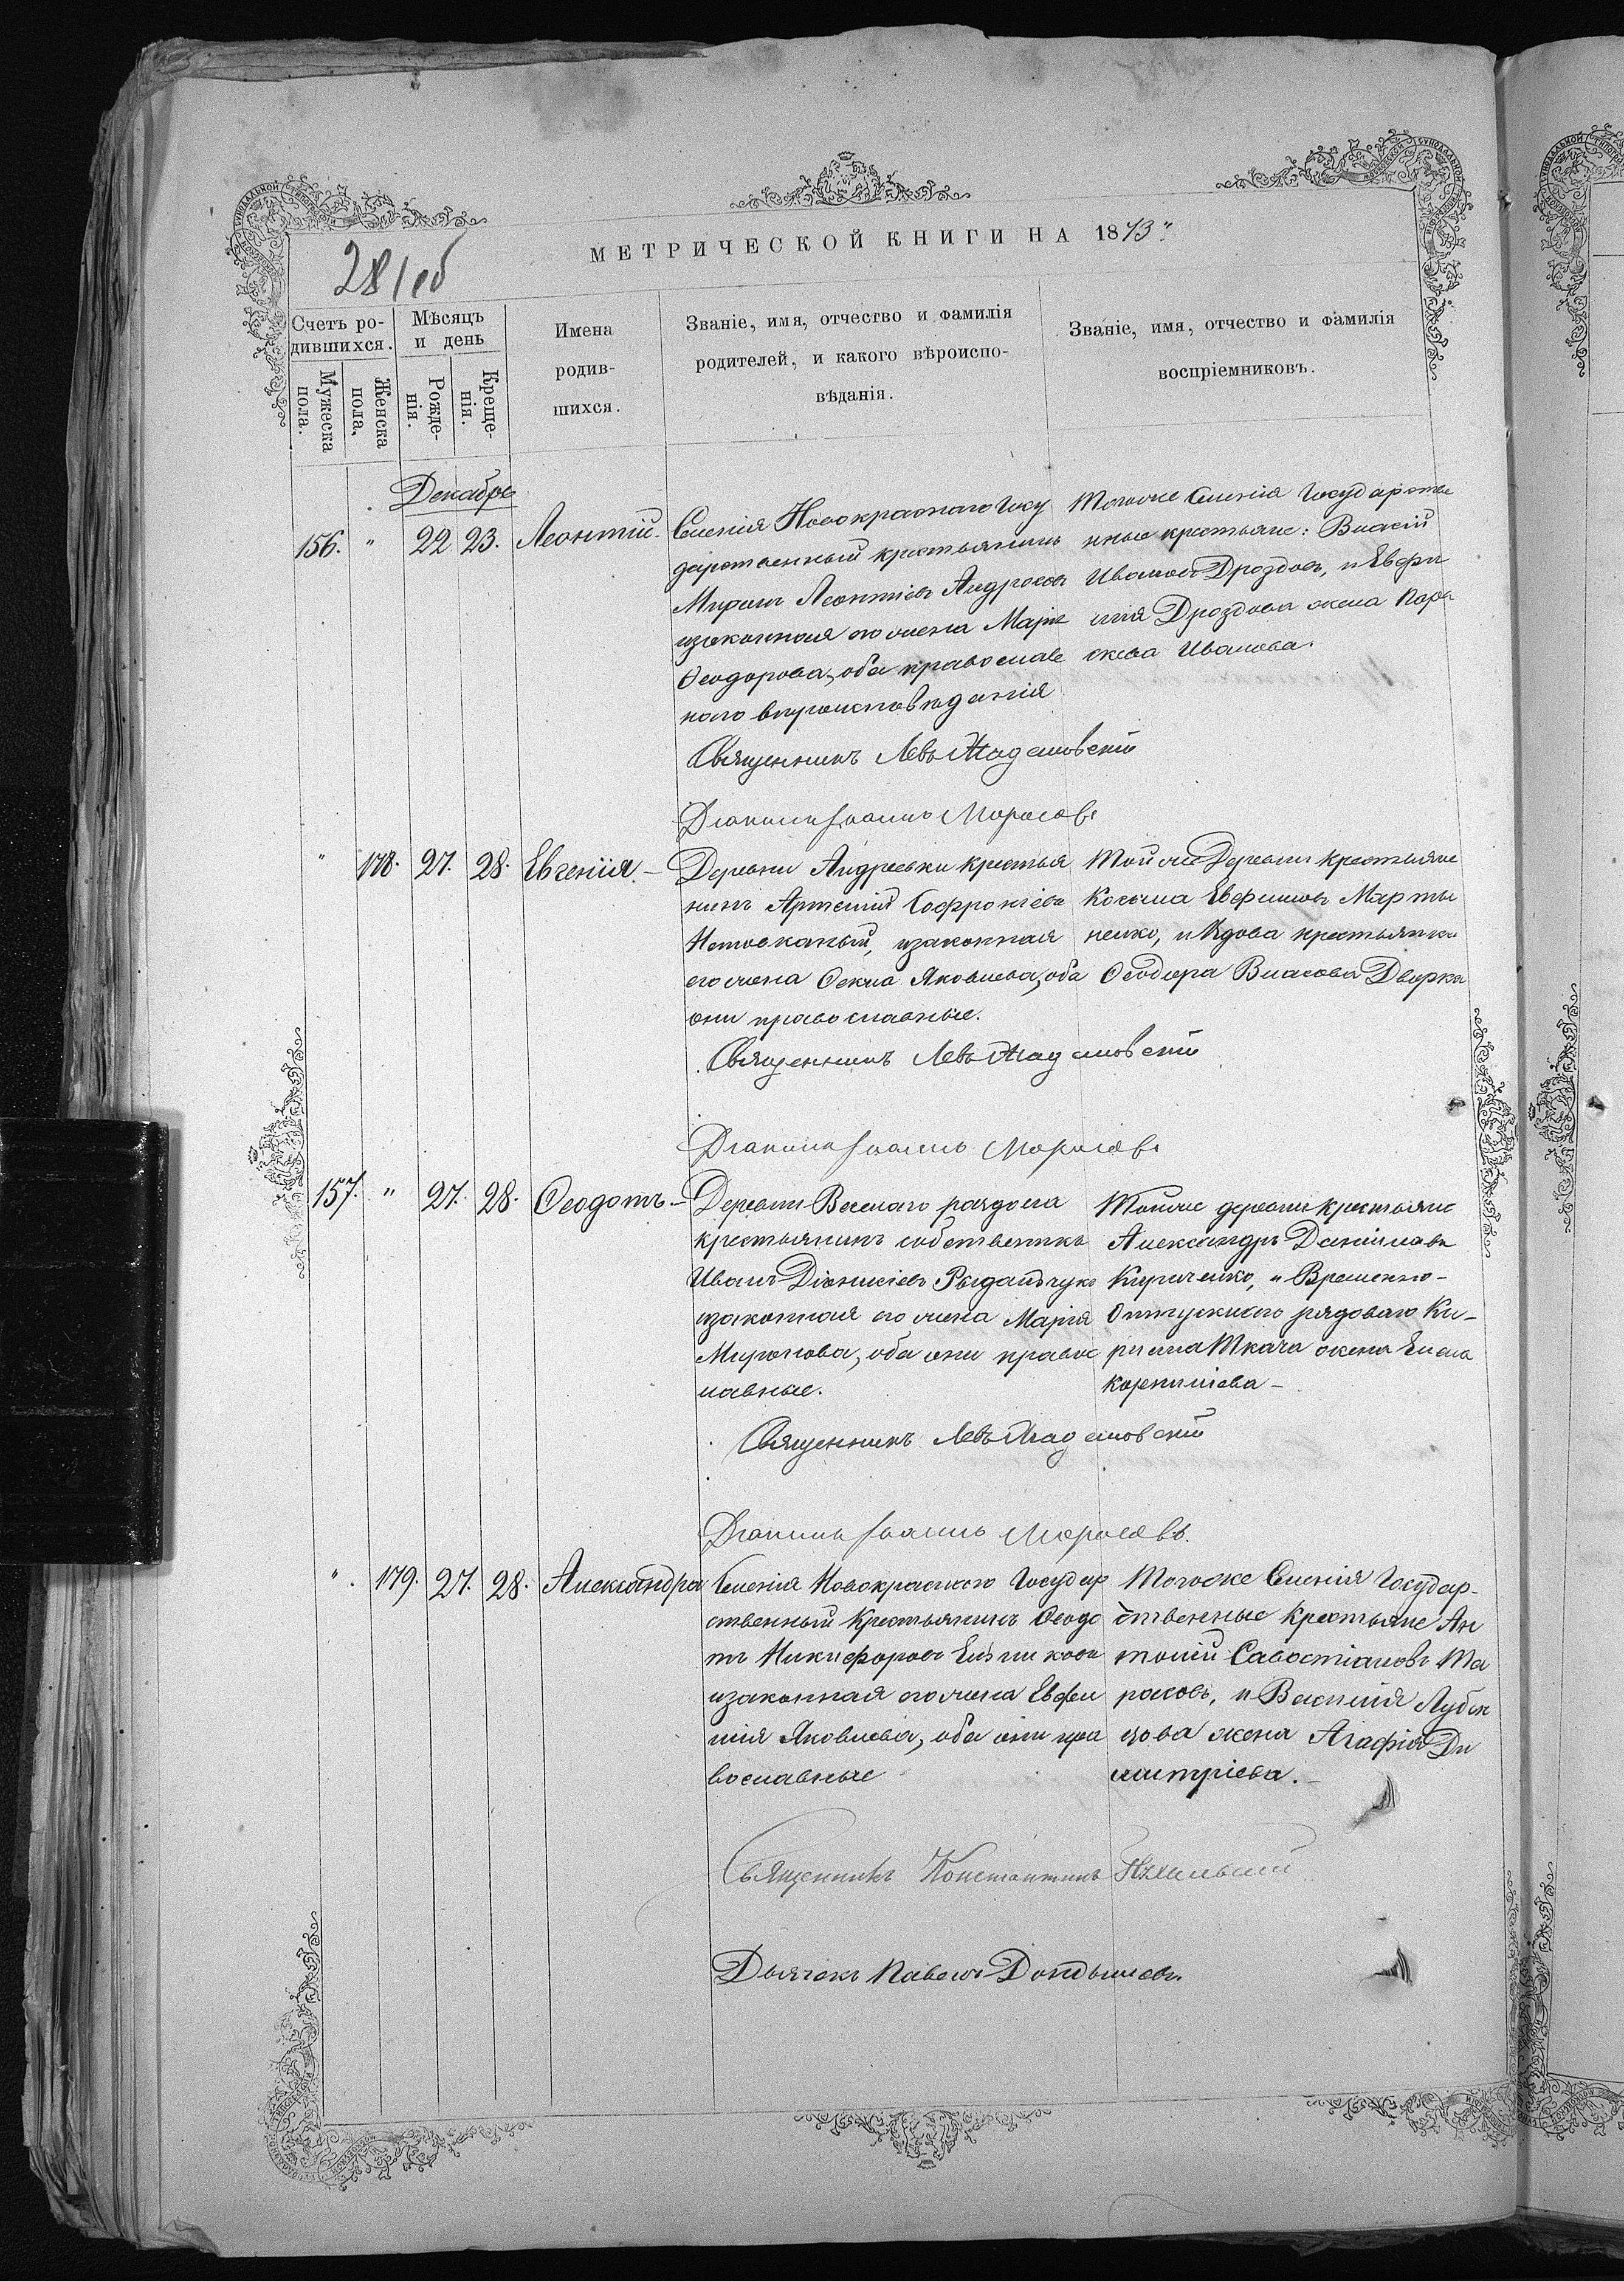 МЕТРИЧЕСКОЙ КНИГИ НА 1873
281об
Счетъ ро-
дившихся.
Мужеска пола.
Женска пола.
Мѣсяцъ
и день
Рожде-
нія.
Креще-
нія.
Имена
родив-
шихся.
Званіе, имя, отчество и фамилія
родителей, и какого вѣроиспо-
вѣданія.
Званіе, имя, отчество и фамилія
воспріемниковъ.
Декабрь
156. " 22 23. Леонтій.
Селенія Новокраснаго Госу
дарственный крестьянинъ
Миронъ Леонтіевъ Андросовъ
изаконная его жена Марія
Ѳеодорова, оба православ
наго вѣроисповѣданія
Тогоже Селенія Государстве
нные крестьяне: Власій
Ивановъ Дроздовъ, и Евфи
мія Дроздова жена Пара
скева Иванова.
Священникъ Левъ
Діаконъ Іоаннъ
" 178. 27. 28. Евгенія. –
Деревни Андреевки крестья
нинъ Артемій Софроніевъ
изаконная
его жена Ѳекла Яковлева, оба
они православные.
Той же Деревни крестьяне
Косьма Евфимовъ Марты
ненко, и Вдова крестьянка
Ѳеодора Власова Дворка
Священникъ Левъ
Діаконъ Іоаннъ
157. " 27. 28. Ѳеодотъ –
Деревни Веселаго раздола
крестьянинъ собственникъ
Иванъ Діонисіевъ
изаконная его жена Марія
Миронова, оба они правос
лавные.
Тойже деревни крестьяне
Александръ Даніиловъ
Кириченко, и Временно-
Отпускнаго рядоваго Ки-
рилла Ткача жена Елена
Корниліева –
Священникъ Левъ
Діаконъ Іоаннъ
". 179. 27. 28. Александра
Селенія Новокраснаго Государ
ственный Крестьянинъ Ѳеодо
тъ Никифоровъ
изаконная его жена Евфи
мія Яковлева, оба они пра
вославные
Тогоже Селенія Государ-
ственные Крестьяне Ан
тоній Савостіановъ Та
расовъ, и Василія
жена Агафія Ди
митріева. –
Священникъ Константинъ
Дьячекъ Павелъ